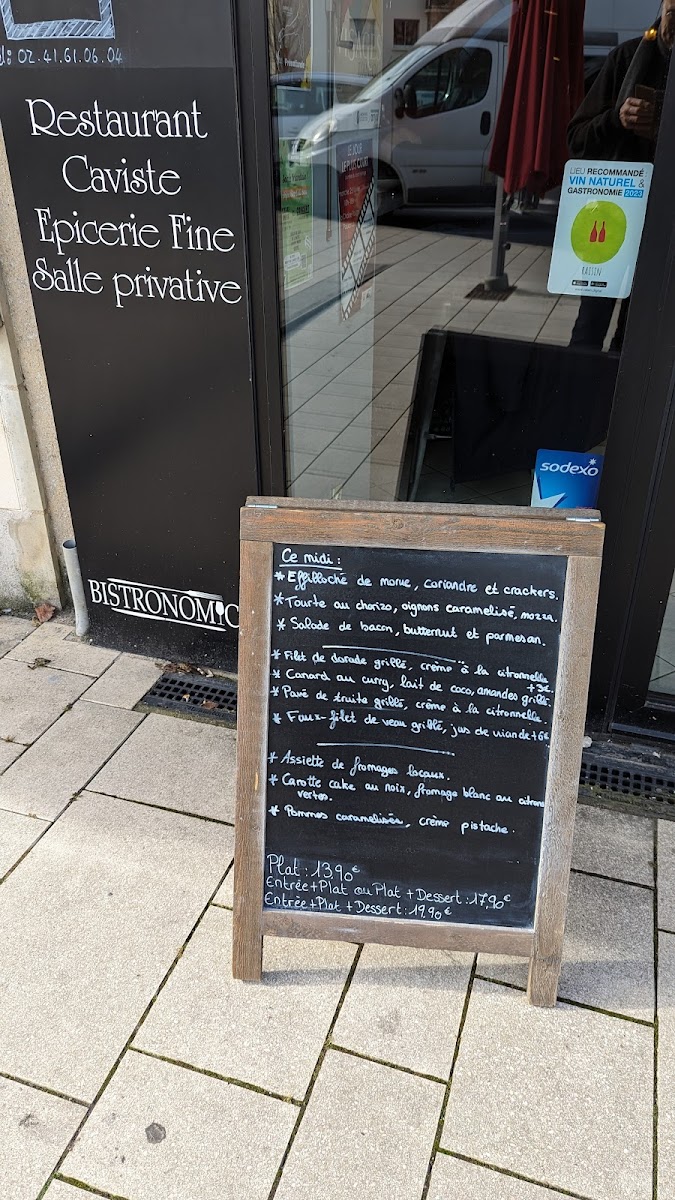 : 02.41.61.06.04
Restaurant
Caviste
Epicerie Fine
Salle privative
BISTRONOMIC
LE JOUR
LIEU RECOMMANDÉ :
VIN NATUREL &
GASTRONOMIE 2023
RAISIN
sodexo
Ce midi :
* Effilloché de morue, coriandre et crackers.
* Tourte au chorizo, oignons caramelisé, mozza.
* Salade de bacon, butternut et parmesan.
* Filet de dorade grillé, crème à la citronnelle
+3€
* Canard au curry, lait de coco, amandes grillé.
* Pavé de truite grillé, crème à la citronnelle
* Faux-filet de veau grillé, jus de viande +6€
* Assiette de fromages locaux.
* Carotte cake au noix, fromage blanc au citrons
vertes.
* Pommes caramelisées, crème pistache.
Plat : 13,90€
Entrée+Plat ou Plat + Dessert : 17,90€
Entrée+Plat + Dessert : 19,90€